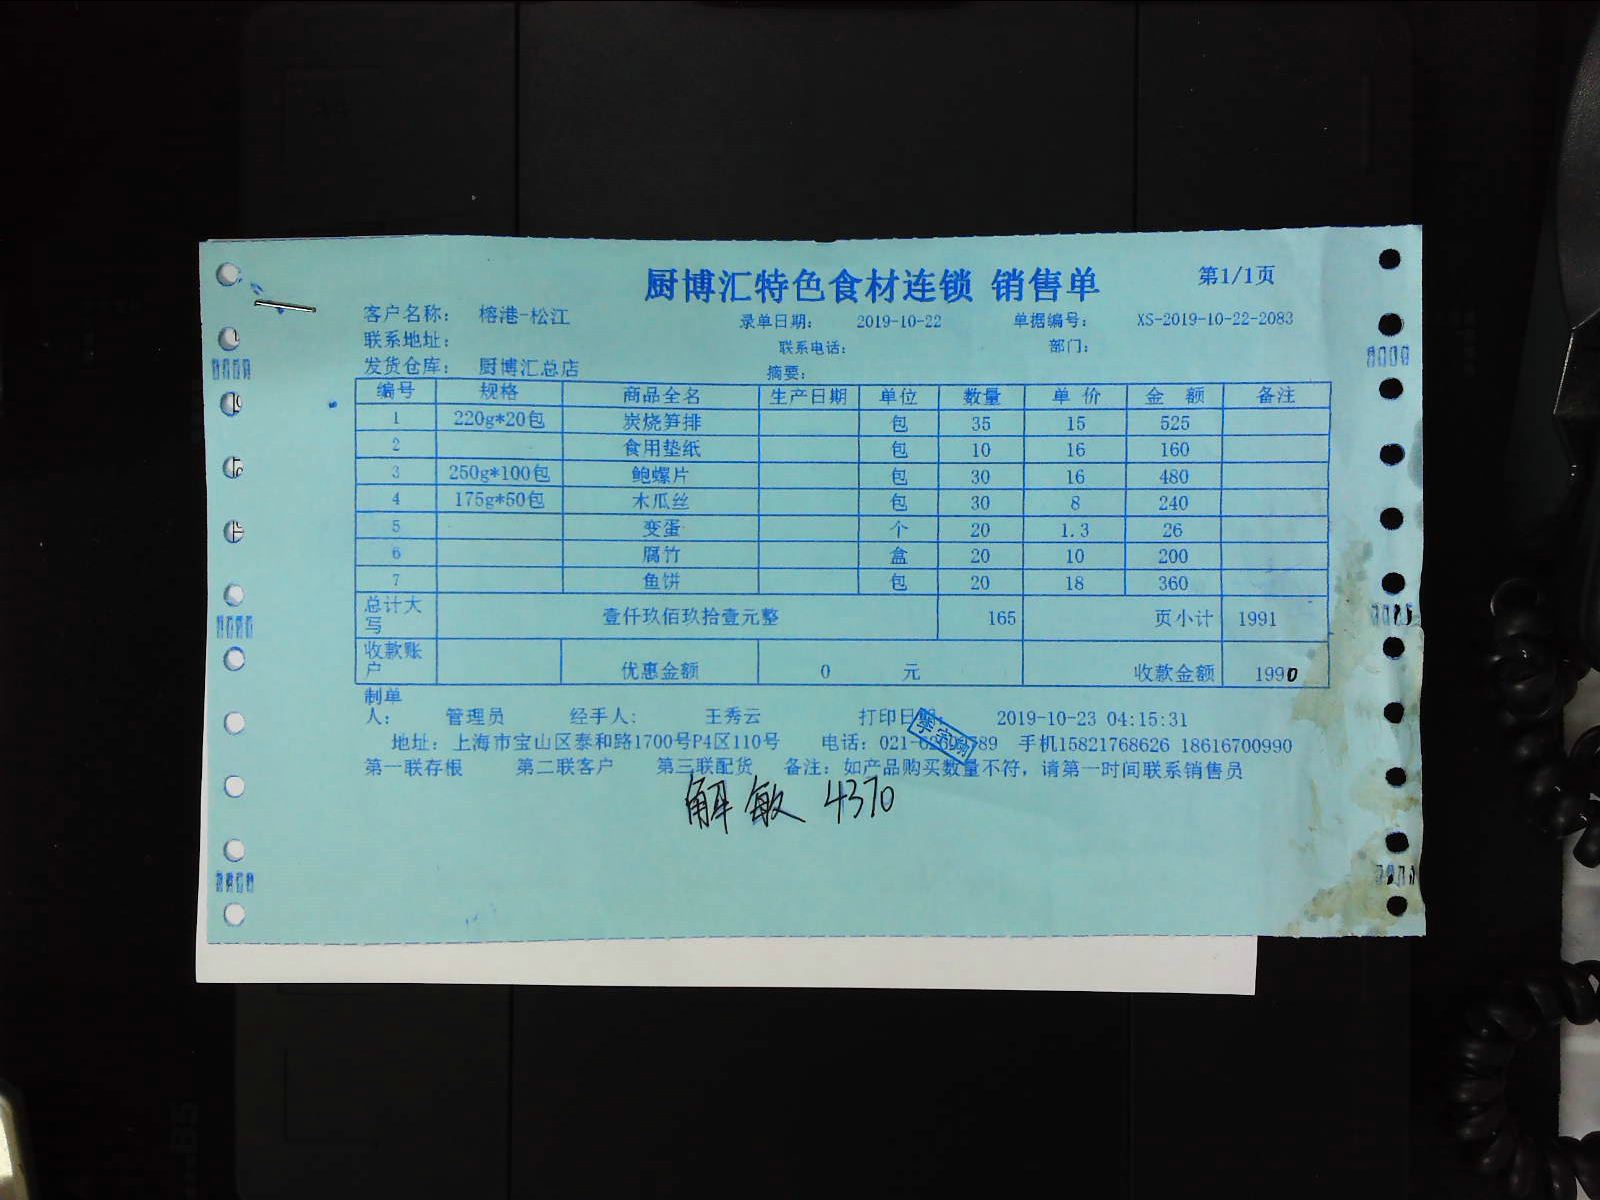 厨博汇特色食材连锁 销售单 第1/1页
客户名称: 榕港-松江 录单日期: 2019-10-22 单据编号: XS-2019-10-22-2083
联系地址: 联系电话: 部门:
发货仓库: 厨博汇总店 摘要:
编号 规格 商品全名 生产日期 单位 数量 单价 金额 备注
1 220g*20包 炭烧笋排 包 35 15 525
2 食用垫纸 包 10 16 160
3 250g*100包 鲍螺片 包 30 16 480
4 175g*50包 木瓜丝 包 30 8 240
5 变蛋 个 20 1.3 26
6 腐竹 盒 20 10 200
7 鱼饼 包 20 18 360
总计大写 壹仟玖佰玖拾壹元整 165 页小计 1991
收款账户 优惠金额 0 元 收款金额 1990
制单人: 管理员 经手人: 王秀云 打印日期: 2019-10-23 04:15:31
地址: 上海市宝山区泰和路1700号P4区110号 电话: 手机15821768626 18616700990
第一联存根 第二联客户 第三联配货 备注: 如产品购买数量不符, 请第一时间联系销售员
解敏 4370